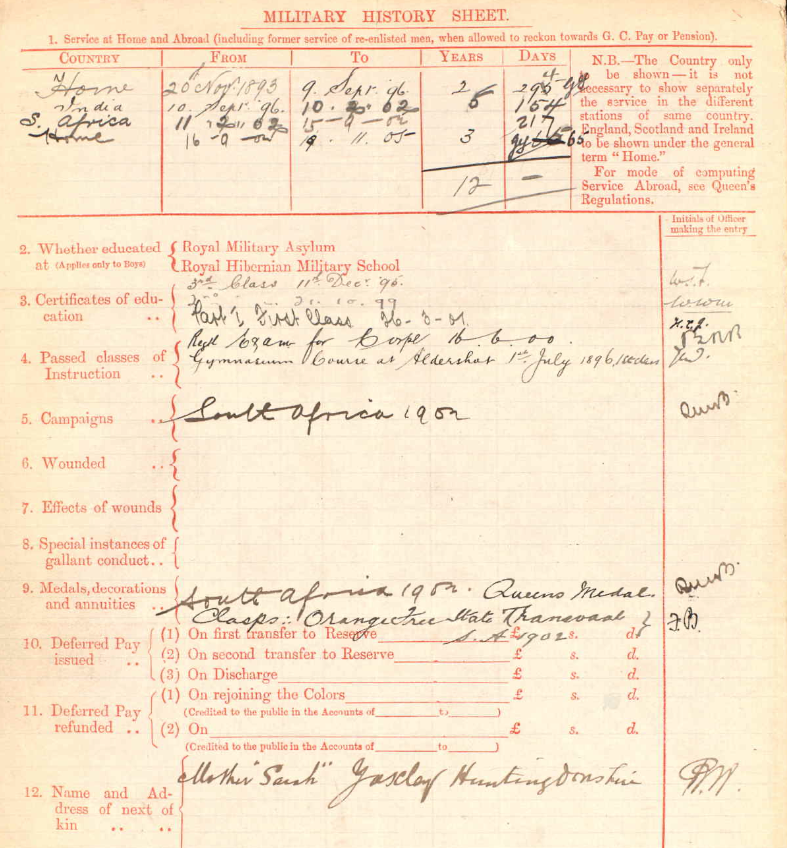 MILITARY HISTORY SHEET.
1. Service at Home and Abroad (including former service of re-enlisted men, when allowed to reckon towards G. C. Pay or Pension).
COUNTRY FROM TO YEARS DAYS
Home 20th Nov. 1893 9. Sept. 96 2
India 10. Sept. 96. 10. 2. 02 5 154
S. Africa 11 2 02 15-9-02 217
Home 16-9-02 19. 11. 05 3 65
12 —
N.B.—The Country only
to be shown—it is not
necessary to show separately
the service in the different
stations of same country.
England, Scotland and Ireland
to be shown under the general
term "Home."
For mode of computing
Service Abroad, see Queen's
Regulations.
Initials of Officer
making the entry
2. Whether educated
at (Applies only to Boys)
Royal Military Asylum
Royal Hibernian Military School
3. Certificates of edu-
cation ..
3rd Class 11th Dec. 95.
2nd 21. 10. 99
Part I, First Class 26-3-01
4. Passed classes of
Instruction ..
Regtl Exam for Corpl 16. 6. 00.
Gymnasium Course at Aldershot 1st July 1896,
5. Campaigns ..
South Africa 1902
6. Wounded ..
7. Effects of wounds
8. Special instances of
gallant conduct..
9. Medals, decorations
and annuities ..
South Africa 1902. Queens Medal.
Clasps: Orange Free State Transvaal }
S. A 1902
F.B.
10. Deferred Pay
issued ..
(1) On first transfer to Reserve £ s. d.
(2) On second transfer to Reserve £ s. d.
(3) On Discharge £ s. d.
11. Deferred Pay
refunded ..
(1) On rejoining the Colors £ s. d.
(Credited to the public in the Accounts of to )
(2) On £ s. d.
(Credited to the public in the Accounts of to )
12. Name and Ad-
dress of next of
kin .. ..
Mother "Sarah" Yaxley Huntingdonshire